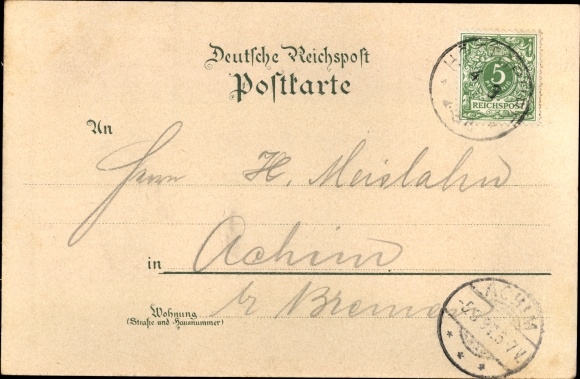 Deutsche Reichspost
Postkarte
5
REICHSPOST
An
Herrn H. Meislahn
in Achim
Wohnung
(Straße und Hausnummer)
b/ Bremen
ACHIM